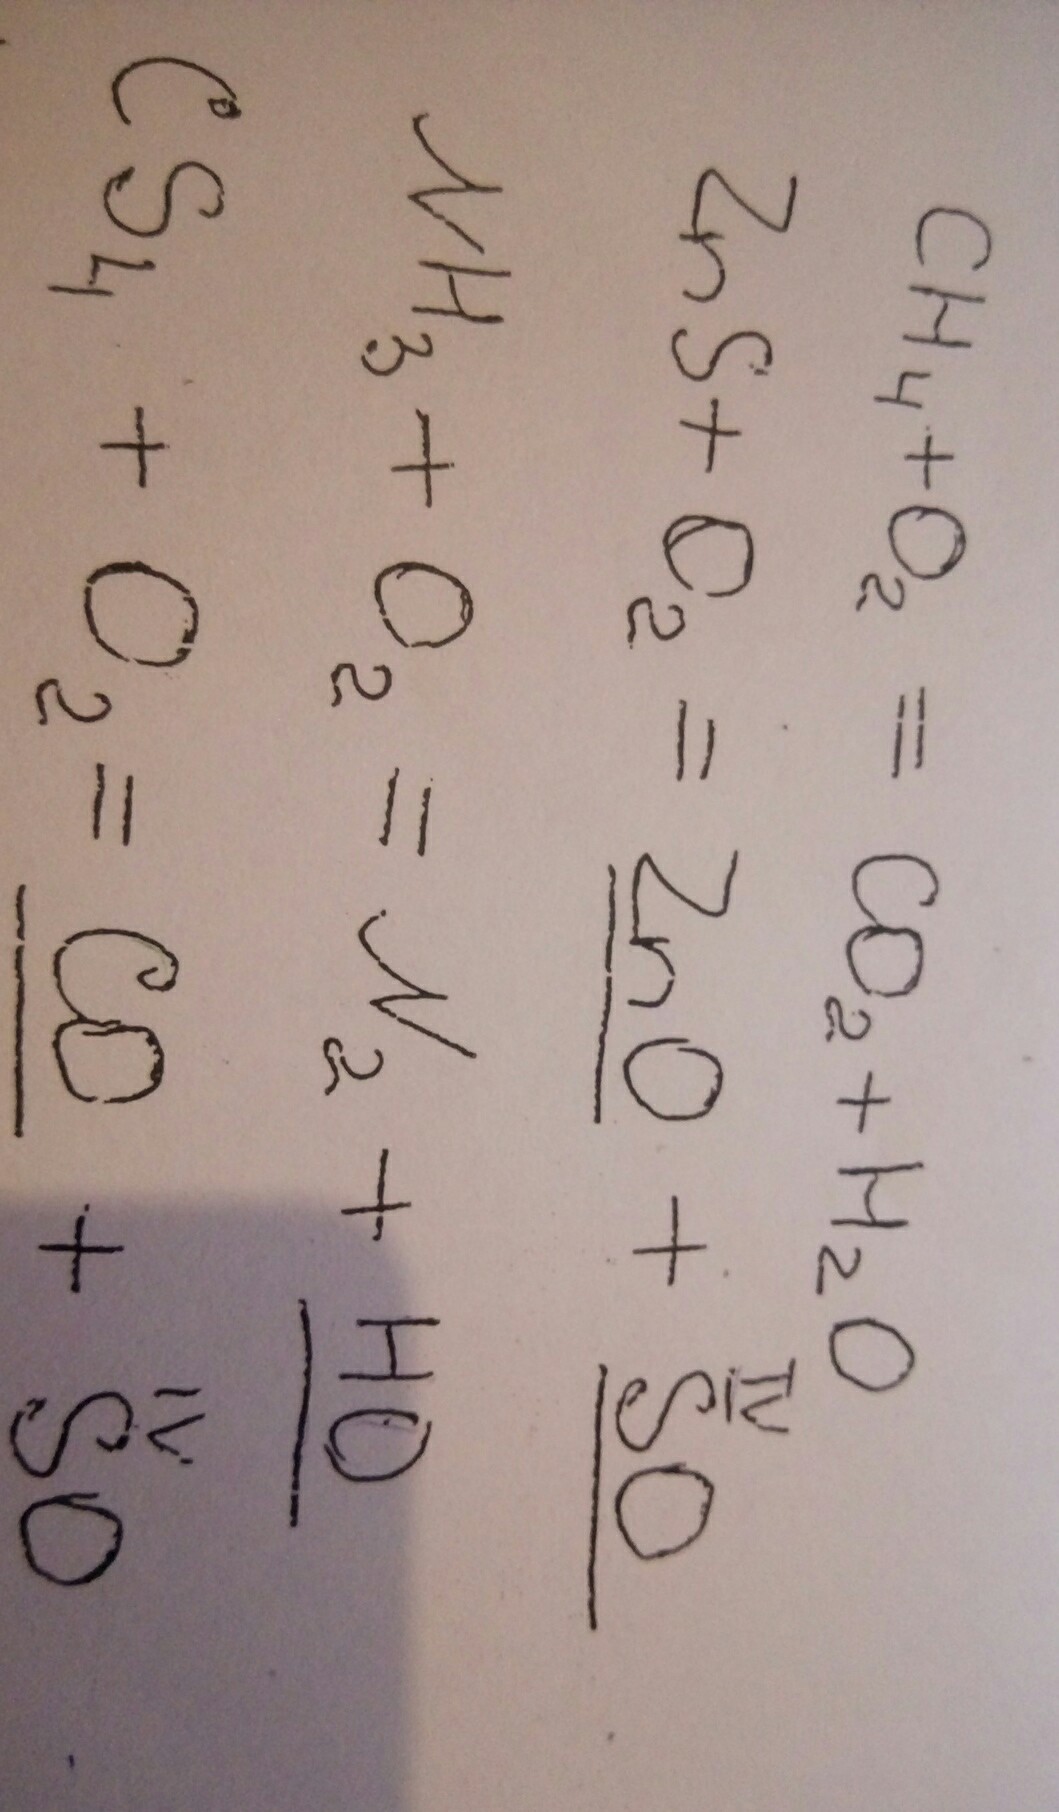 CH₄ + O₂ = CO₂ + H₂O
ZnS + O₂ = ZnO + S^IVO
NH₃ + O₂ = N₂ + HO
CS₄ + O₂ = CO + S^IVO